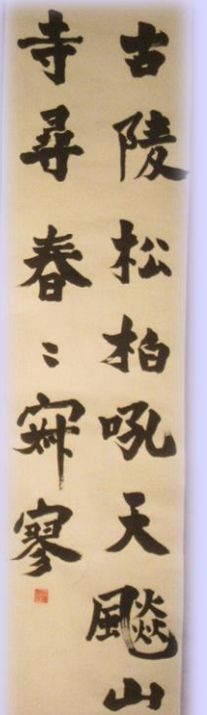 古陵松柏吼天飈山
寺尋春〻寂寥